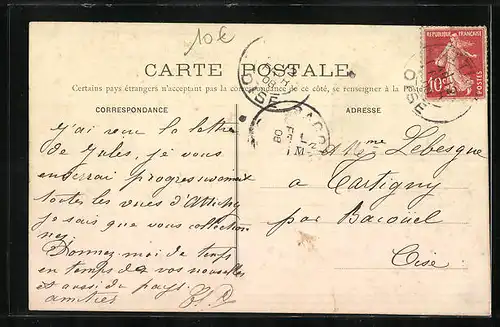 10€
CARTE POSTALE
Certains pays étrangers n'acceptant pas la correspondance de ce côté, se renseigner à la Poste
CORRESPONDANCE
ADRESSE
REPUBLIQUE FRANÇAISE
10c
OISE
OISE
08
J'ai reçu la lettre
de Jules, je vous
enverrai progressivement
toutes les vues d'Attichy
je sais que vous collection
nez
Donnez-moi de temps
en temps de vos nouvelles
et aussi du pays.
amitiés
Mme Lebesgue
a Tartigny
par Bacouël
Oise